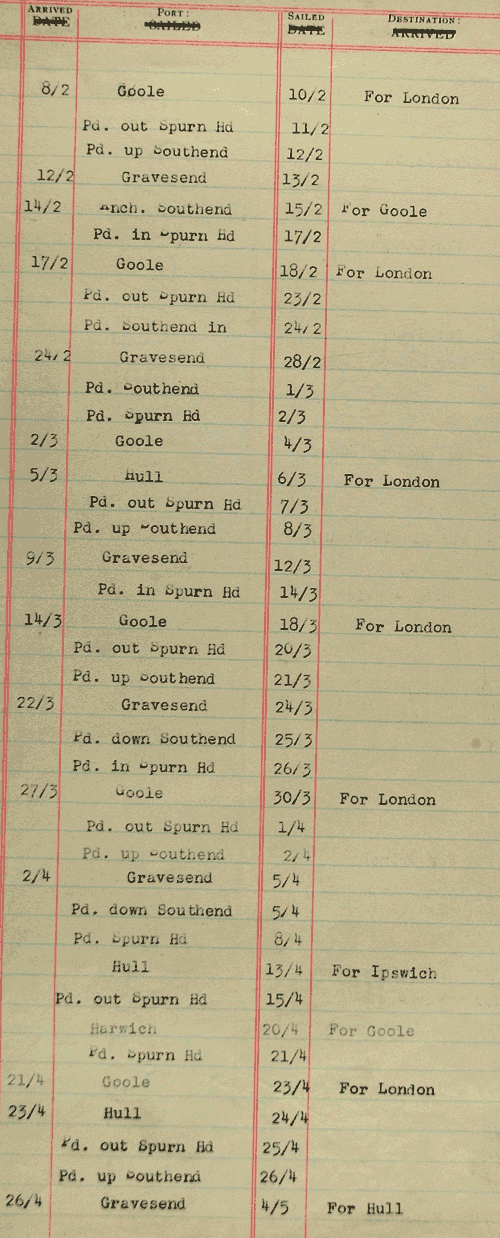 ARRIVED PORT: SAILED DESTINATION:
DATE SAILED DATE ARRIVED
8/2 Goole 10/2 For London
Pd. out Spurn Hd 11/2
Pd. up Southend 12/2
12/2 Gravesend 13/2
14/2 Anch. Southend 15/2 For Goole
Pd. in Spurn Hd 17/2
17/2 Goole 18/2 For London
Pd. out Spurn Hd 23/2
Pd. Southend in 24/2
24/2 Gravesend 28/2
Pd. Southend 1/3
Pd. Spurn Hd 2/3
2/3 Goole 4/3
5/3 Hull 6/3 For London
Pd. out Spurn Hd 7/3
Pd. up Southend 8/3
9/3 Gravesend 12/3
Pd. in Spurn Hd 14/3
14/3 Goole 18/3 For London
Pd. out Spurn Hd 20/3
Pd. up Southend 21/3
22/3 Gravesend 24/3
Pd. down Southend 25/3
Pd. in Spurn Hd 26/3
27/3 Goole 30/3 For London
Pd. out Spurn Hd 1/4
Pd. up Southend 2/4
2/4 Gravesend 5/4
Pd. down Southend 5/4
Pd. Spurn Hd 8/4
Hull 13/4 For Ipswich
Pd. out Spurn Hd 15/4
Harwich 20/4 For Goole
Pd. Spurn Hd 21/4
21/4 Goole 23/4 For London
23/4 Hull 24/4
Pd. out Spurn Hd 25/4
Pd. up Southend 26/4
26/4 Gravesend 4/5 For Hull